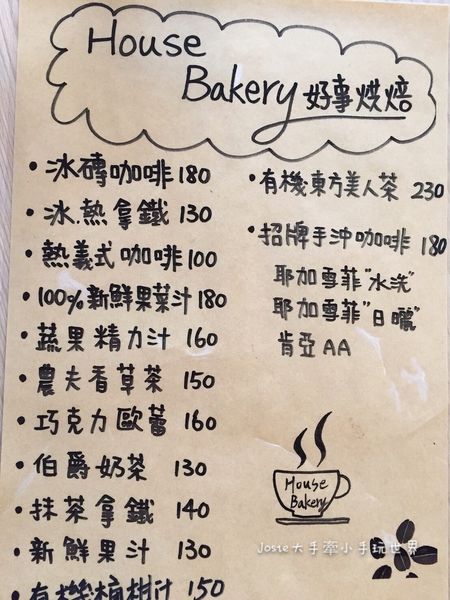 House
Bakery 好事烘焙
• 冰磚咖啡 180
• 冰.熱拿鐵 130
• 熱義式咖啡 100
• 100%新鮮果菜汁 180
• 蔬果精力汁 160
• 農夫香草茶 150
• 巧克力歐蕾 160
• 伯爵奶茶 130
• 抹茶拿鐵 140
• 新鮮果汁 130
• 有機柳柑汁 150
• 有機東方美人茶 230
• 招牌手沖咖啡 180
耶加雪菲"水洗"
耶加雪菲"日曬"
肯亞AA
House
Bakery
Josie大手牽小手玩世界